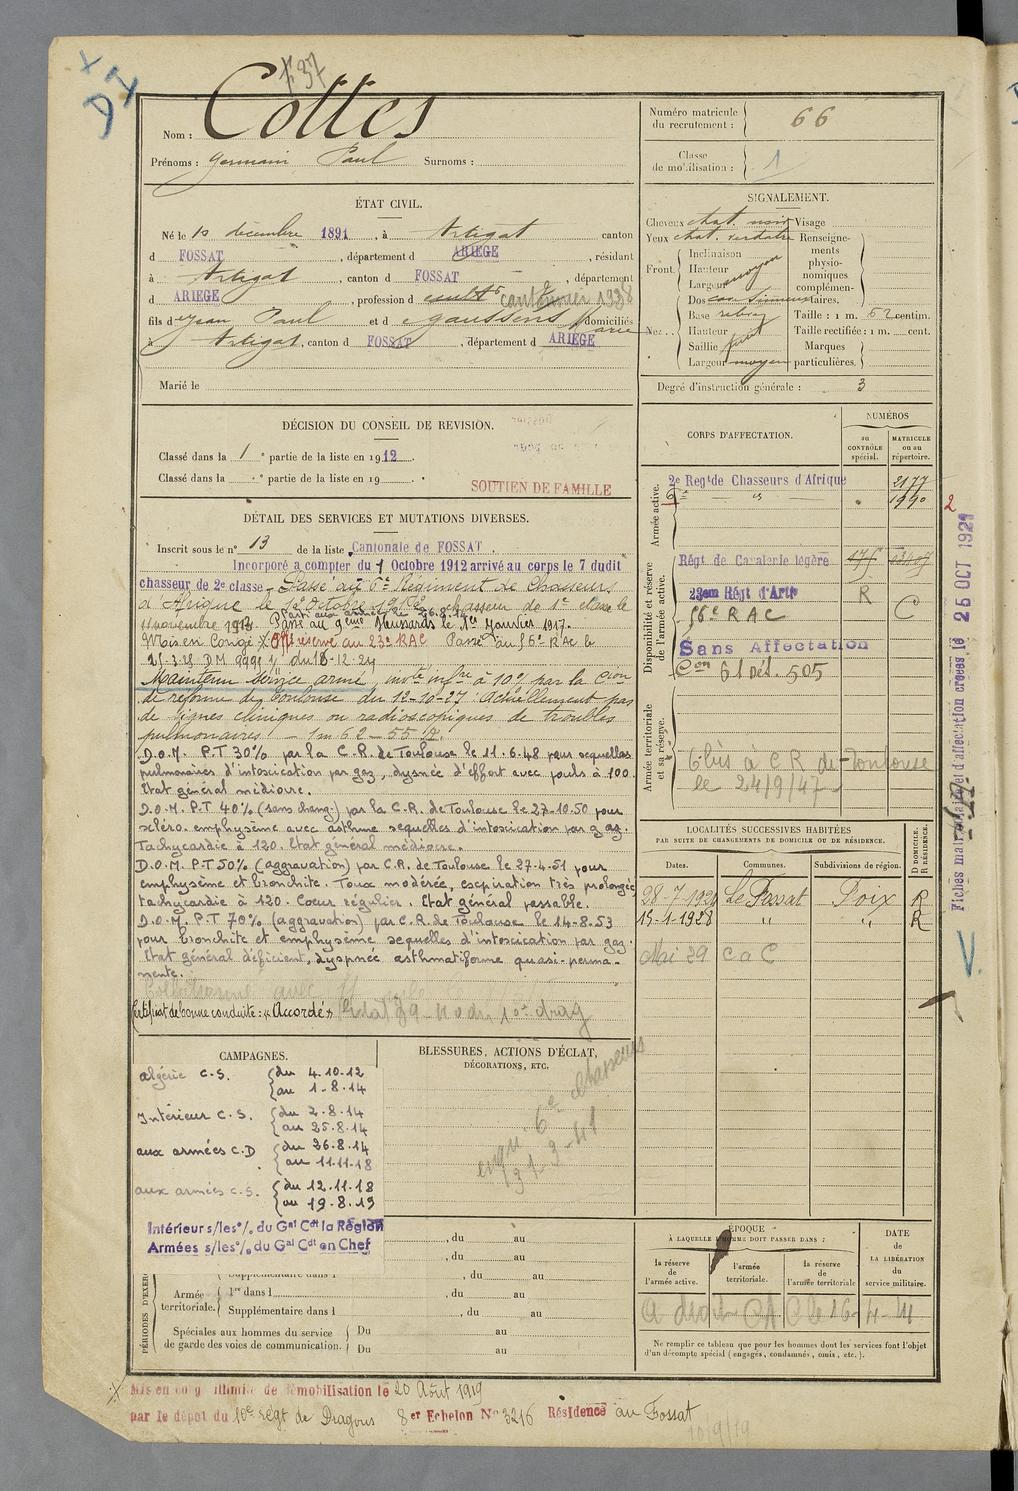 F 37
Nom : Cottes
Prénoms : Germain Paul Surnoms :
Numéro matricule du recrutement : 66
Classe de mobilisation : 1
ÉTAT CIVIL.
Né le 10 décembre 1891, à Artigat canton
d FOSSAT, département d ARIEGE, résidant
à Artigat, canton d FOSSAT, département
d ARIEGE, profession d cultr cantonnier 1938
fils d e Jean Paul et d e Gaussens Marie domiciliés
à Artigat, canton d FOSSAT, département d ARIEGE
Marié le
SIGNALEMENT.
Cheveux chat. noir Visage
Yeux chat. verdatre Renseigne-
ments
physio-
nomiques
complémen-
taires.
Front. Inclinaison
Hauteur moyen
Largeur
Nez... Dos cav. sinueux
Base
Hauteur
Saillie
Largeur moyen
Taille : 1 m. 62 centim.
Taille rectifiée : 1 m. cent.
Marques
particulières.
Degré d'instruction générale : 3
DÉCISION DU CONSEIL DE REVISION.
Classé dans la 1e partie de la liste en 1912.
Classé dans la e partie de la liste en 19
SOUTIEN DE FAMILLE
DÉTAIL DES SERVICES ET MUTATIONS DIVERSES.
Inscrit sous le n° 13 de la liste Cantonale de FOSSAT.
Incorporé a compter du 1 Octobre 1912 arrivé au corps le 7 dudit
chasseur de 2e classe Passé au 6e Régiment de Chasseurs
d'Afrique le 1e Octobre chasseur de 1e classe le
11 novembre 1913. Passé au 9ème Hussards le 1er Janvier 1917.
Mis en Congé Aff réservé au 23e RAC Passé au 56e RAC le
du 18-12-24
Maintenu service armé, invte infre à 10% par la Cion
de réforme de Toulouse du 12-10-27. Actuellement pas
de signes cliniques ou radioscopiques de troubles
pulmonaires. 1m62-55 K.
D.O.M. P.T. 30% par la C.R. de Toulouse le 11.6.48 pour sequelles
pulmonaires d'intoxication par gaz, dysnée d'effort avec pouls à 100.
Etat général médiocre.
D.O.M. P.T 40% (sans chang.) par la C.R. de Toulouse le 27-10-50 pour
scléro. emphysème avec asthme sequelles d'intoxication par gaz.
Tachycardie à 120. Etat général médiocre.
D.O.M. P.T 50% (aggravation) par C.R. de Toulouse le 27-4-51 pour
emphysème et bronchite. Toux modérée, expiration très prolongée
tachycardie à 120. Coeur régulier. Etat général passable.
D.O.M. P.T 70% (aggravation) par C.R. de Toulouse le 14-8-53
pour bronchite et emphysème sequelles d'intoxication par gaz.
Etat général déficient, dyspnée asthmatiforme quasi-perma-
nente.
Certificat de bonne conduite : "Accordé"
CORPS D'AFFECTATION.
NUMÉROS
au CONTRÔLE spécial.
MATRICULE ou au répertoire.
Armée active.
2e Regt de Chasseurs d'Afrique 2177
6e 1990
2
Disponibilité et réserve de l'armée active.
Régt de Cavalerie légère
23ème Régt d'Artie R
56e RAC C
Sans Affectation
Con 61 Dét. 505
Armée territoriale et sa réserve.
6 bis à C R de Toulouse
le 24/9/47
LOCALITÉS SUCCESSIVES HABITÉES
PAR SUITE DE CHANGEMENTS DE DOMICILE OU DE RÉSIDENCE.
Dates. Communes. Subdivisions de région. D DOMICILE. R RÉSIDENCE.
28-7-1924 Le Fossat Foix R
15-1-1928 " " R
Mai 39 C a C
CAMPAGNES.
Algérie C.S. du 4.10.12
au 1-8-14
Intérieur C.S. du 2.8.14
au 25.8.14
aux armées C.D du 26.8.14
au 11-11-18
aux armées C.S. du 12.11.18
au 19.8.19
Intérieur s/les o/. du Gal Cdt la Région
Armées s/les o/. du Gal Cdt en Chef
BLESSURES, ACTIONS D'ÉCLAT,
DÉCORATIONS, ETC.
6e Chasseurs
31-3-41
PÉRIODES D'EXER
, du au
, du au
Supplémentaire dans l , du au
Armée territoriale. 1re dans l , du au
Supplémentaire dans l , du au
Spéciales aux hommes du service
de garde des voies de communication. Du au
Du au
ÉPOQUE
À LAQUELLE L'HOMME DOIT PASSER DANS :
la réserve de l'armée active.
l'armée territoriale.
la réserve de l'armée territoriale
DATE de LA LIBÉRATION du service militaire.
Ne remplir ce tableau que pour les hommes dont les services font l'objet
d'un décompte spécial (engagés, condamnés, omis, etc.).
Mis en congé illimité de démobilisation le 20 Août 1919
par le dépôt du 10e régt de Dragons 8er Echelon No 3216 Résidence au Fossat
10/9/19
Fiches matricule et d'affectation créées le 25 OCT 1921